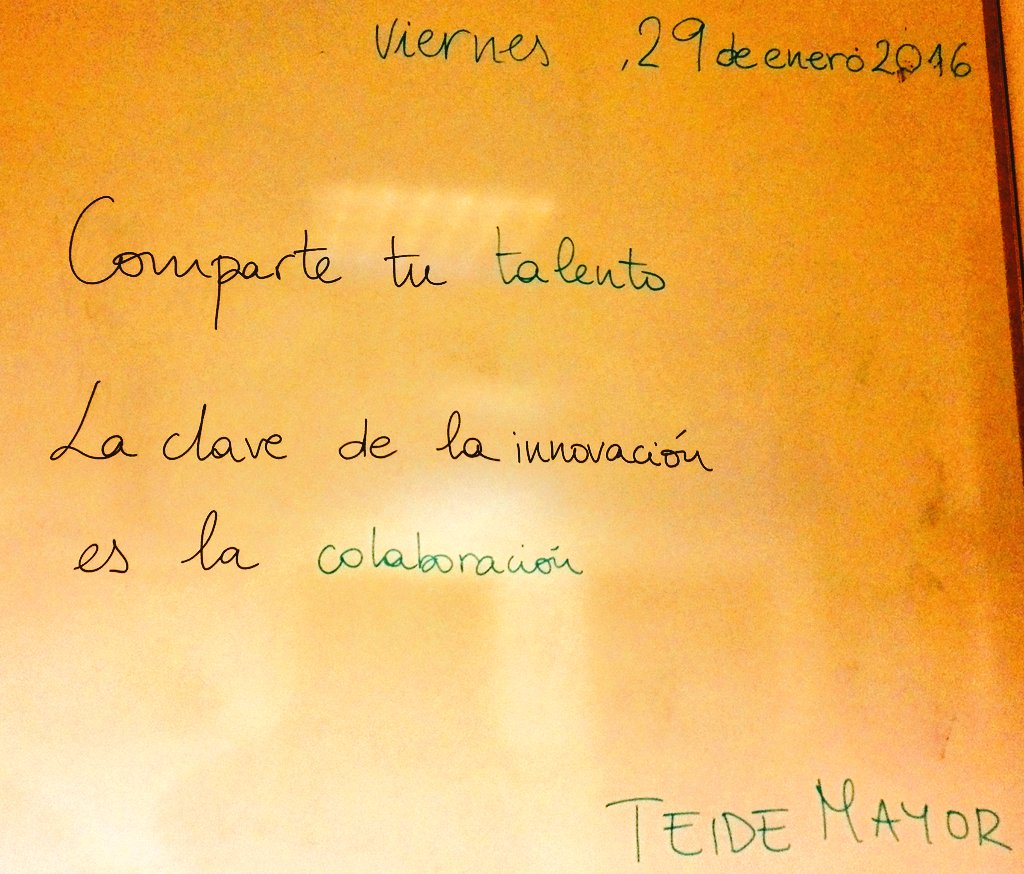 viernes, 29 de enero 2016
Comparte tu talento
La clave de la innovación
es la colaboración
TEIDE MAYOR